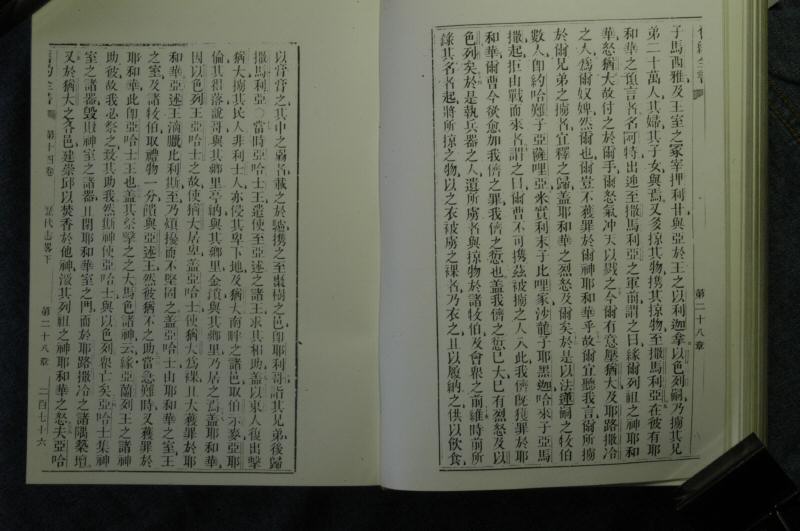 舊約全書
第二十八章
子馬西雅及王室之冢宰押利甘與亞於王之以利迦拿以色列嗣乃擄其兄
弟二十萬人其婦其子女與焉又多掠其物攜其掠物至撒馬利亞在彼有耶
和華之預言者名阿特出迎至撒馬利亞之軍前謂之曰緣爾列祖之神耶和
華怒猶大故付之於爾手爾怒氣冲天以戮之今爾有意壓猶大及耶路撒冷
之人為爾奴婢然爾也爾豈不獲罪於爾神耶和華乎故爾宜聽我言爾所擄
於爾兄弟之擄者宜釋之歸蓋耶和華之烈怒及爾矣於是以法蓮嗣之牧伯
數人即約哈難子亞薩哩亞米實利末子比哩家沙龍子耶黑迦哈來子亞馬
撒起拒由戰而來者謂之曰爾曹不可攜茲被擄之人入此我儕既獲罪於耶
和華爾曹今欲愈加我儕之罪我儕之愆也蓋我儕之愆已大已有烈怒及以
色列矣於是執兵器之人遺所虜者與掠物於諸牧伯及會眾之前維時前所
錄其名者起將所掠之物以之衣被虜之裸者乃衣之且以履納之供以飲食
以膏膏之其中之弱者載之於驢攜之至棗樹之邑即耶利哥詣其兄弟後歸
撒馬利亞〇當時亞哈士王遣使至亞述之諸王求其相助蓋以東人復出擊
猶大擄其民人非利士人亦侵其卑下地及猶大南畔之諸邑取伯示麥亞耶
倫其羅得說哥與其鄉里亭納與其鄉里金瀆與其鄉里乃居之焉蓋耶和華
因以色列王亞哈士之故使猶大居卑蓋亞哈士使猶大為裸且大獲罪於耶
和華亞述王滴臘比利斯至乃煩擾而不堅固之蓋亞哈士由耶和華之室王
之室及諸牧伯取禮物一分饋與亞述王然彼猶不之助當急難時又獲罪於
耶和華此即亞哈士王也蓋其祭擊之之大馬色諸神云緣亞蘭列王之諸神
助彼故我必祭之致其助我然斯神使亞哈士與以色列眾亡矣亞哈士集神
室之諸器毀斷神室之諸器且閉耶和華室之門而於耶路撒冷之諸隅築壇
又於猶大之各邑建崇邱以焚香於他神激其列祖之神耶和華之怒夫亞哈
舊約全書
第十四卷
歷代志畧下
第二十八章
二百七十六